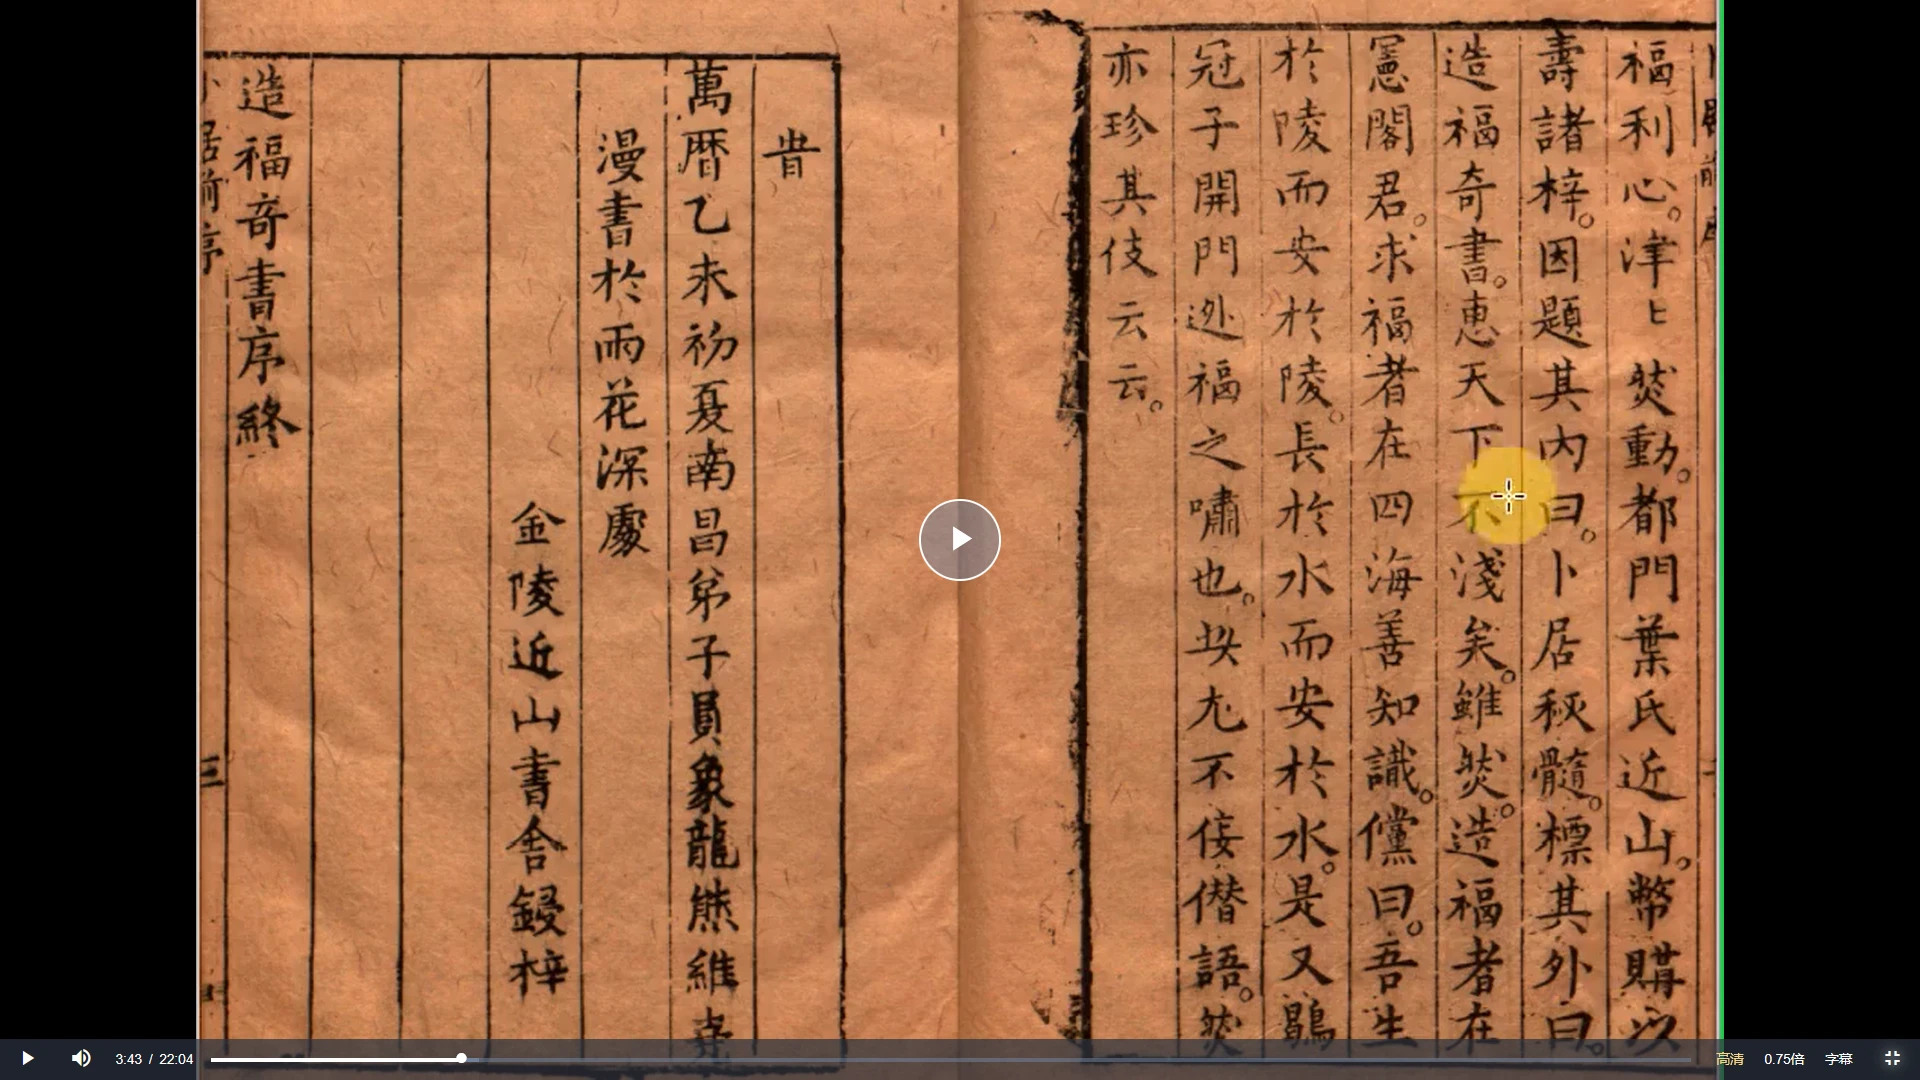 福利心。津〻𤆼動。都門葉氏近山。幣購以
壽諸梓。因題其內曰。卜居秘髓。標其外曰。
造福奇書。惠天下不淺矣。雖𤆼。造福者在
憲閣君。求福者在四海善知識。儻曰。吾生
於陵而安於陵。長於水而安於水。是又鶡
冠子開門迯福之嘯也。此尤不佞僭語。𤆼
亦珍其伎云云。
旹
萬曆乙未初夏南昌弟子員象龍熊維
漫書於雨花深處
金陵近山書舍鋟梓
造福奇書序終
三
3:43 / 22:04
高清
0.75倍
字幕